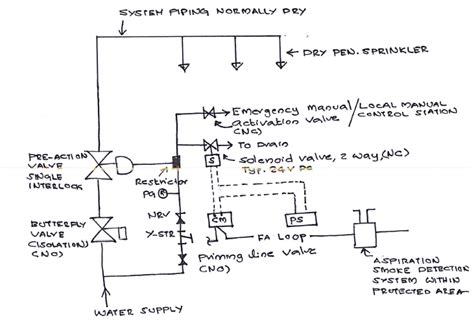 SYSTEM PIPING NORMALLY DRY
DRY PEN. SPRINKLER
Emergency manual/LOCAL MANUAL
activation valve CONTROL STATION
(NC)
To Drain
S
Solenoid valve, 2 way, (NC)
Typ. 24 V DC
PRE-ACTION
VALVE
SINGLE
INTERLOCK
Restrictor
PG
BUTTERFLY
VALVE
(ISOLATION)
(NO)
NRV
Y-STR
CM
PS
FA LOOP
Priming line valve
(NO)
ASPIRATION
SMOKE DETECTION
SYSTEM WITHIN
PROTECTED AREA
WATER SUPPLY